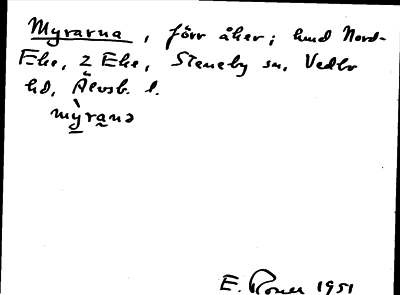 Myrarna, förr åker; hmd Nord-
Eke, 2 Eke, Steneby sn, Vedbo
hd, Älvsb. l.
mỳrana
E. 1951